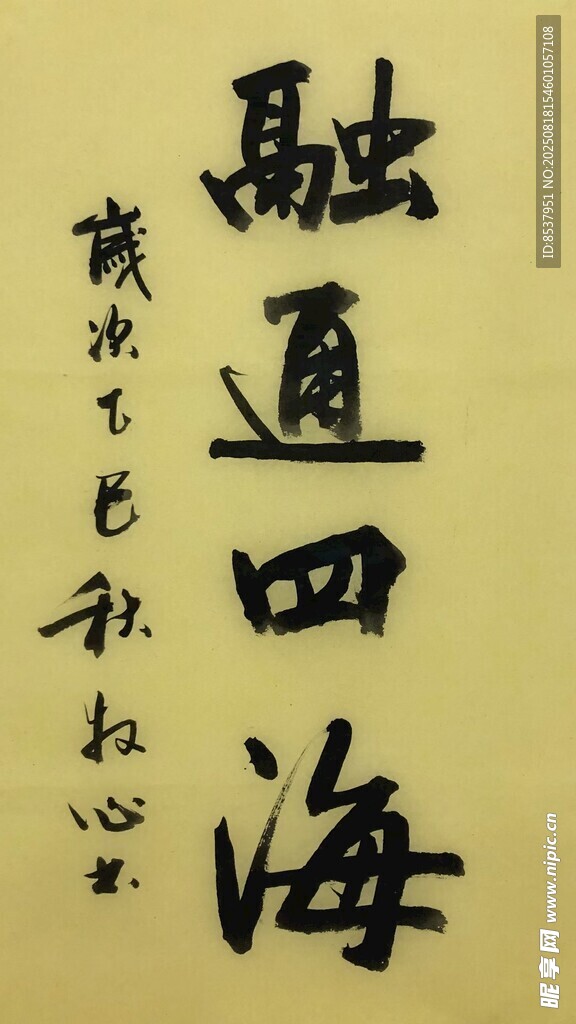 融通四海
歲次乙巳秋牧心书
ID:8537951 NO:20250818154601057108
昵享网 www.nipic.cn